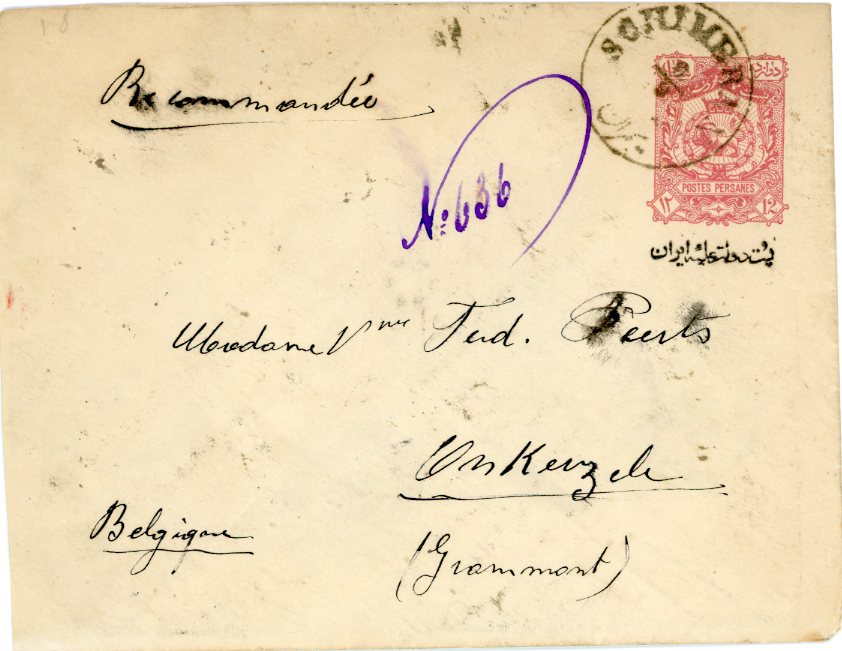 Recommandée
SCHIMERAN
POSTES PERSANES
۱۲ 12
پست دولت علیه ایران
No 636
Madame Vme Ferd. Peerts
Onkerzele
Belgique
(Grammont)